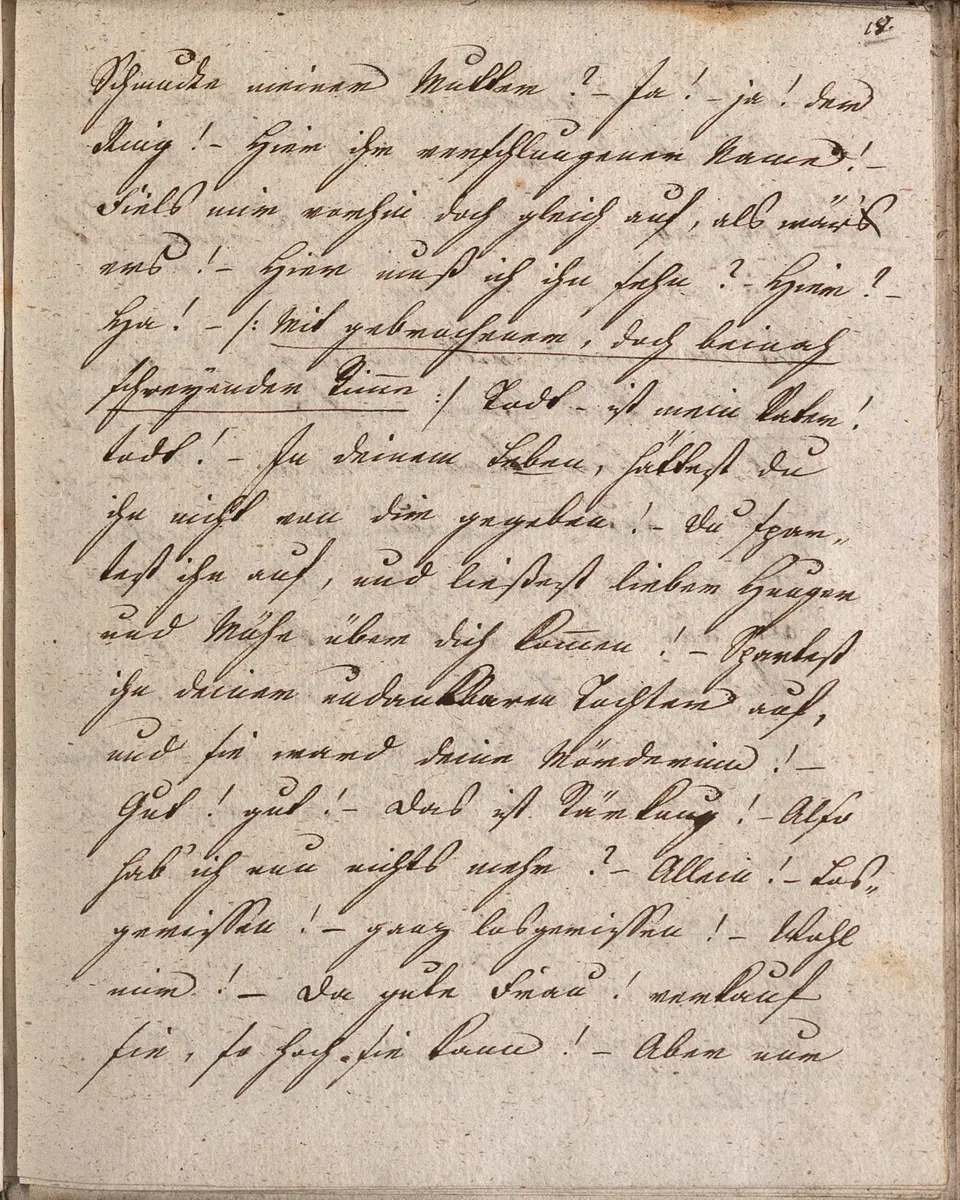 18.
Schmucke meiner Mutter? – Ja! – ja! der
Ring! – Hier ihr verschlungener Name! –
Fiels mir vorhin doch gleich auf, als wärs
ers! – Hier muß ich ihn sehn? – Hier? –
Ha! – /: Mit gebrochener, doch beinah
schreyender Stimme :/ Todt – ist mein Vater!
todt! – In deinem Leben, hättest du
ihn nicht von dir gegeben! – Du spar„
test ihn auf, und ließest lieber Hunger
und Mühe über dich kom̅en! – Spartest
ihn deiner undankbaren Tochter auf,
und sie ward deine Mörderinn! –
Gut! gut! – Das ist Stärkung! – Also
hab' ich nun nichts mehr? – Allein! – Los„
gerissen! – ganz losgerissen! – Wohl
mir! – Da gute Frau! verkauf
sie, so hoch sie kann! – Aber nur